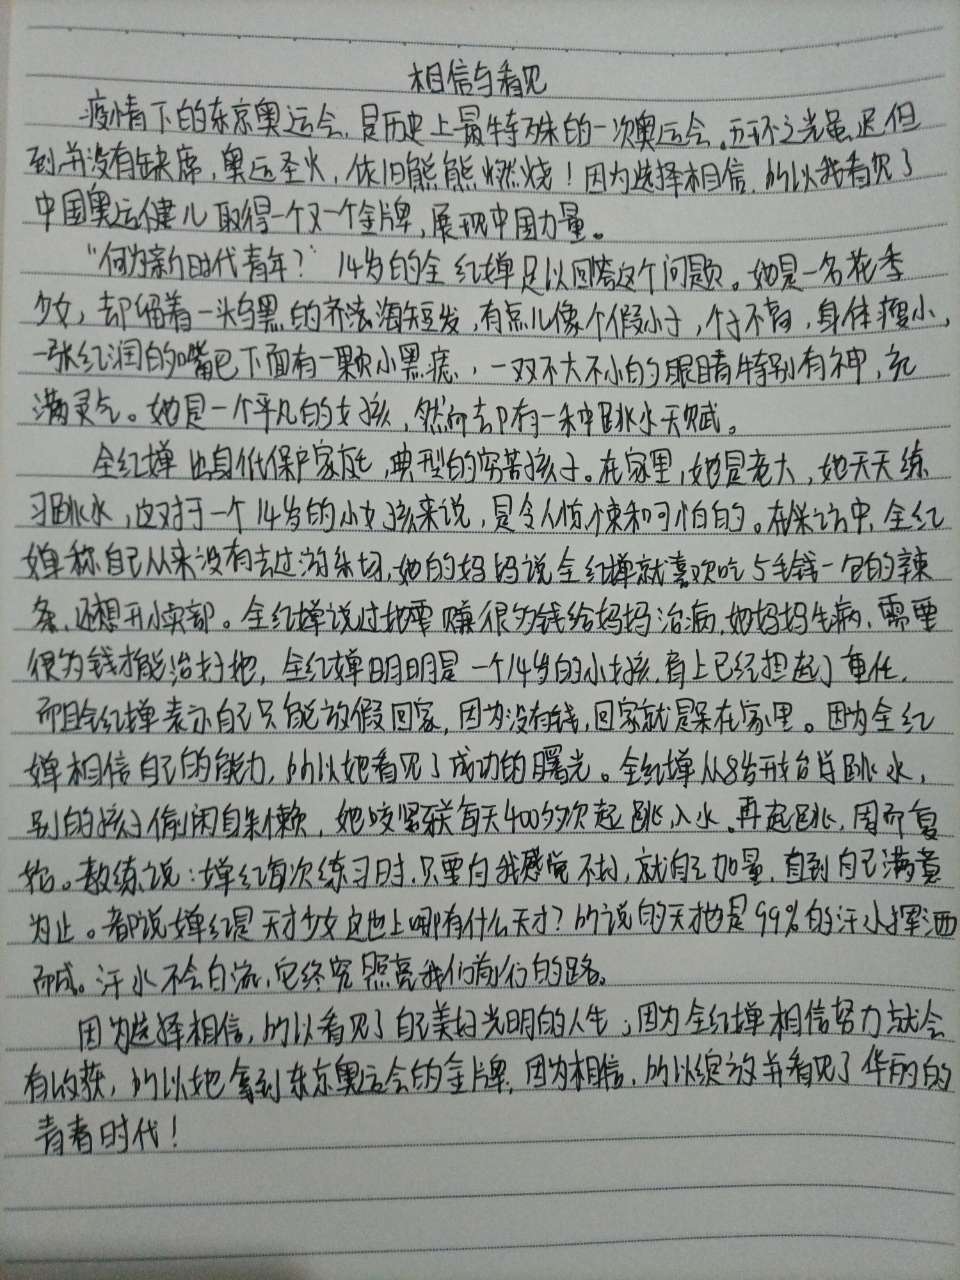 相信与看见
疫情下的东京奥运会,是历史上最特殊的一次奥运会。五环之光虽迟但
到并没有缺席,奥运圣火,依旧熊熊燃烧!因为选择相信,所以我看见了
中国奥运健儿取得一个又一个金牌,展现中国力量。
“何为新时代青年?”14岁的全红婵足以回答这个问题。她是一名花季
少女,却留着一头乌黑的齐浓淘短发,有点儿像个假小子,个子不高,身体瘦小,
一张红润的嘴巴下面有一颗小黑痣,一双不大不小的眼睛特别有神,充
满灵气。她是一个平凡的女孩,然而却有一种跳水天赋。
全红婵出身低保户家庭,典型的穷苦孩子。在家里,她是老大,她天天练
习跳水,这对于一个14岁的小女孩来说,是令人惊悚和可怕的。在采访中,全红
婵称自己从来没有去过游乐场,她的妈妈说全红婵就喜欢吃5毛钱一包的辣
条,还想开小卖部。全红婵说过她要赚很多钱给妈妈治病,她妈妈生病,需要
很多钱才能治好她,全红婵明明是一个14岁的小孩,肩上已经担起了重任,
而且全红婵表示自己只能放假回家,因为没有钱,回家就是呆在家里。因为全红
婵相信自己的能力,所以她看见了成功的曙光。全红婵从8岁开始学跳水,
别的孩子偷闲自来懒,她咬紧牙关每天400多次起跳入水。再起跳,周而复
始。教练说:婵红每次练习时,只要自我感觉不好,就自己加量,直到自己满意
为止。都说婵红是天才少女,这世上哪有什么天才?所说的天才也是99%的汗水挥洒
而成。汗水不会白流,它终究照亮我们前行的路。
因为选择相信,所以看见了自己美好光明的人生;因为全红婵相信努力就会
有收获,所以她拿到东京奥运会的金牌,因为相信,所以绽放并看见了华丽的
青春时代!